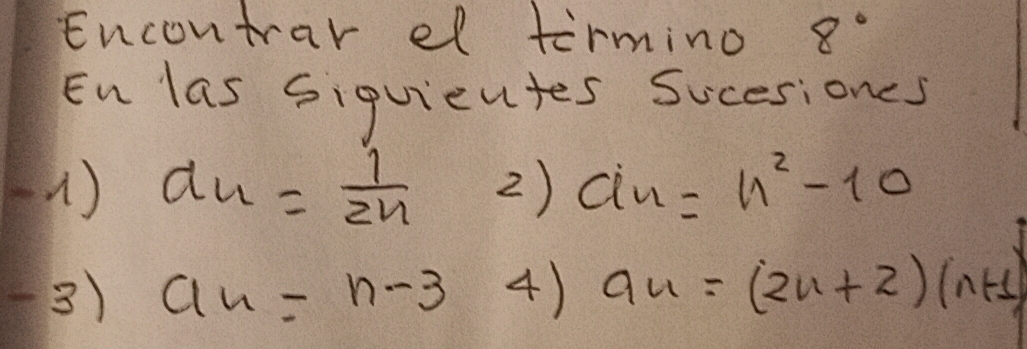 Encontrar el término 8°
En las siguientes Sucesiones
1) an = 1/2n 2) an = n² - 10
3) an = n-3 4) an = (2n+2)(n+1)